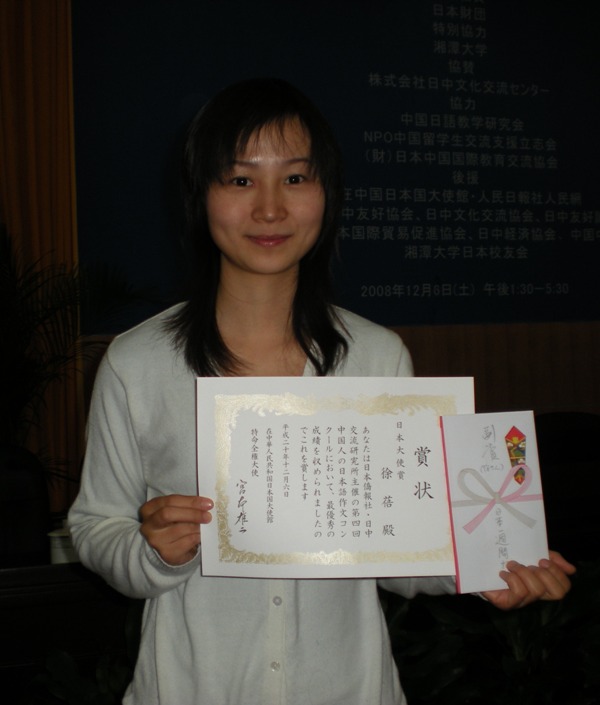 日本財団
特別協力
湘潭大学
協賛
株式会社日中文化交流センター
協力
中国日語教学研究会
NPO中国留学生交流支援立志会
(財)日本中国国際教育交流協会
後援
在中国日本国大使館・人民日報社人民網
中友好協会、日中文化交流協会、日中友好
本国際貿易促進協会、日中経済協会、中国中
湘潭大学日本校友会
2008年12月6日(土) 午後1:30-5:30
賞状
日本大使賞
徐蓓 殿
あなたは日本僑報社・日中
交流研究所主催の第四回
中国人の日本語作文コン
クールにおいて、最優秀の
成績を収められましたの
でこれを賞します
平成二十年十二月六日
在中華人民共和国日本国大使館
特命全権大使
宮本雄二
副賞
日本一週間